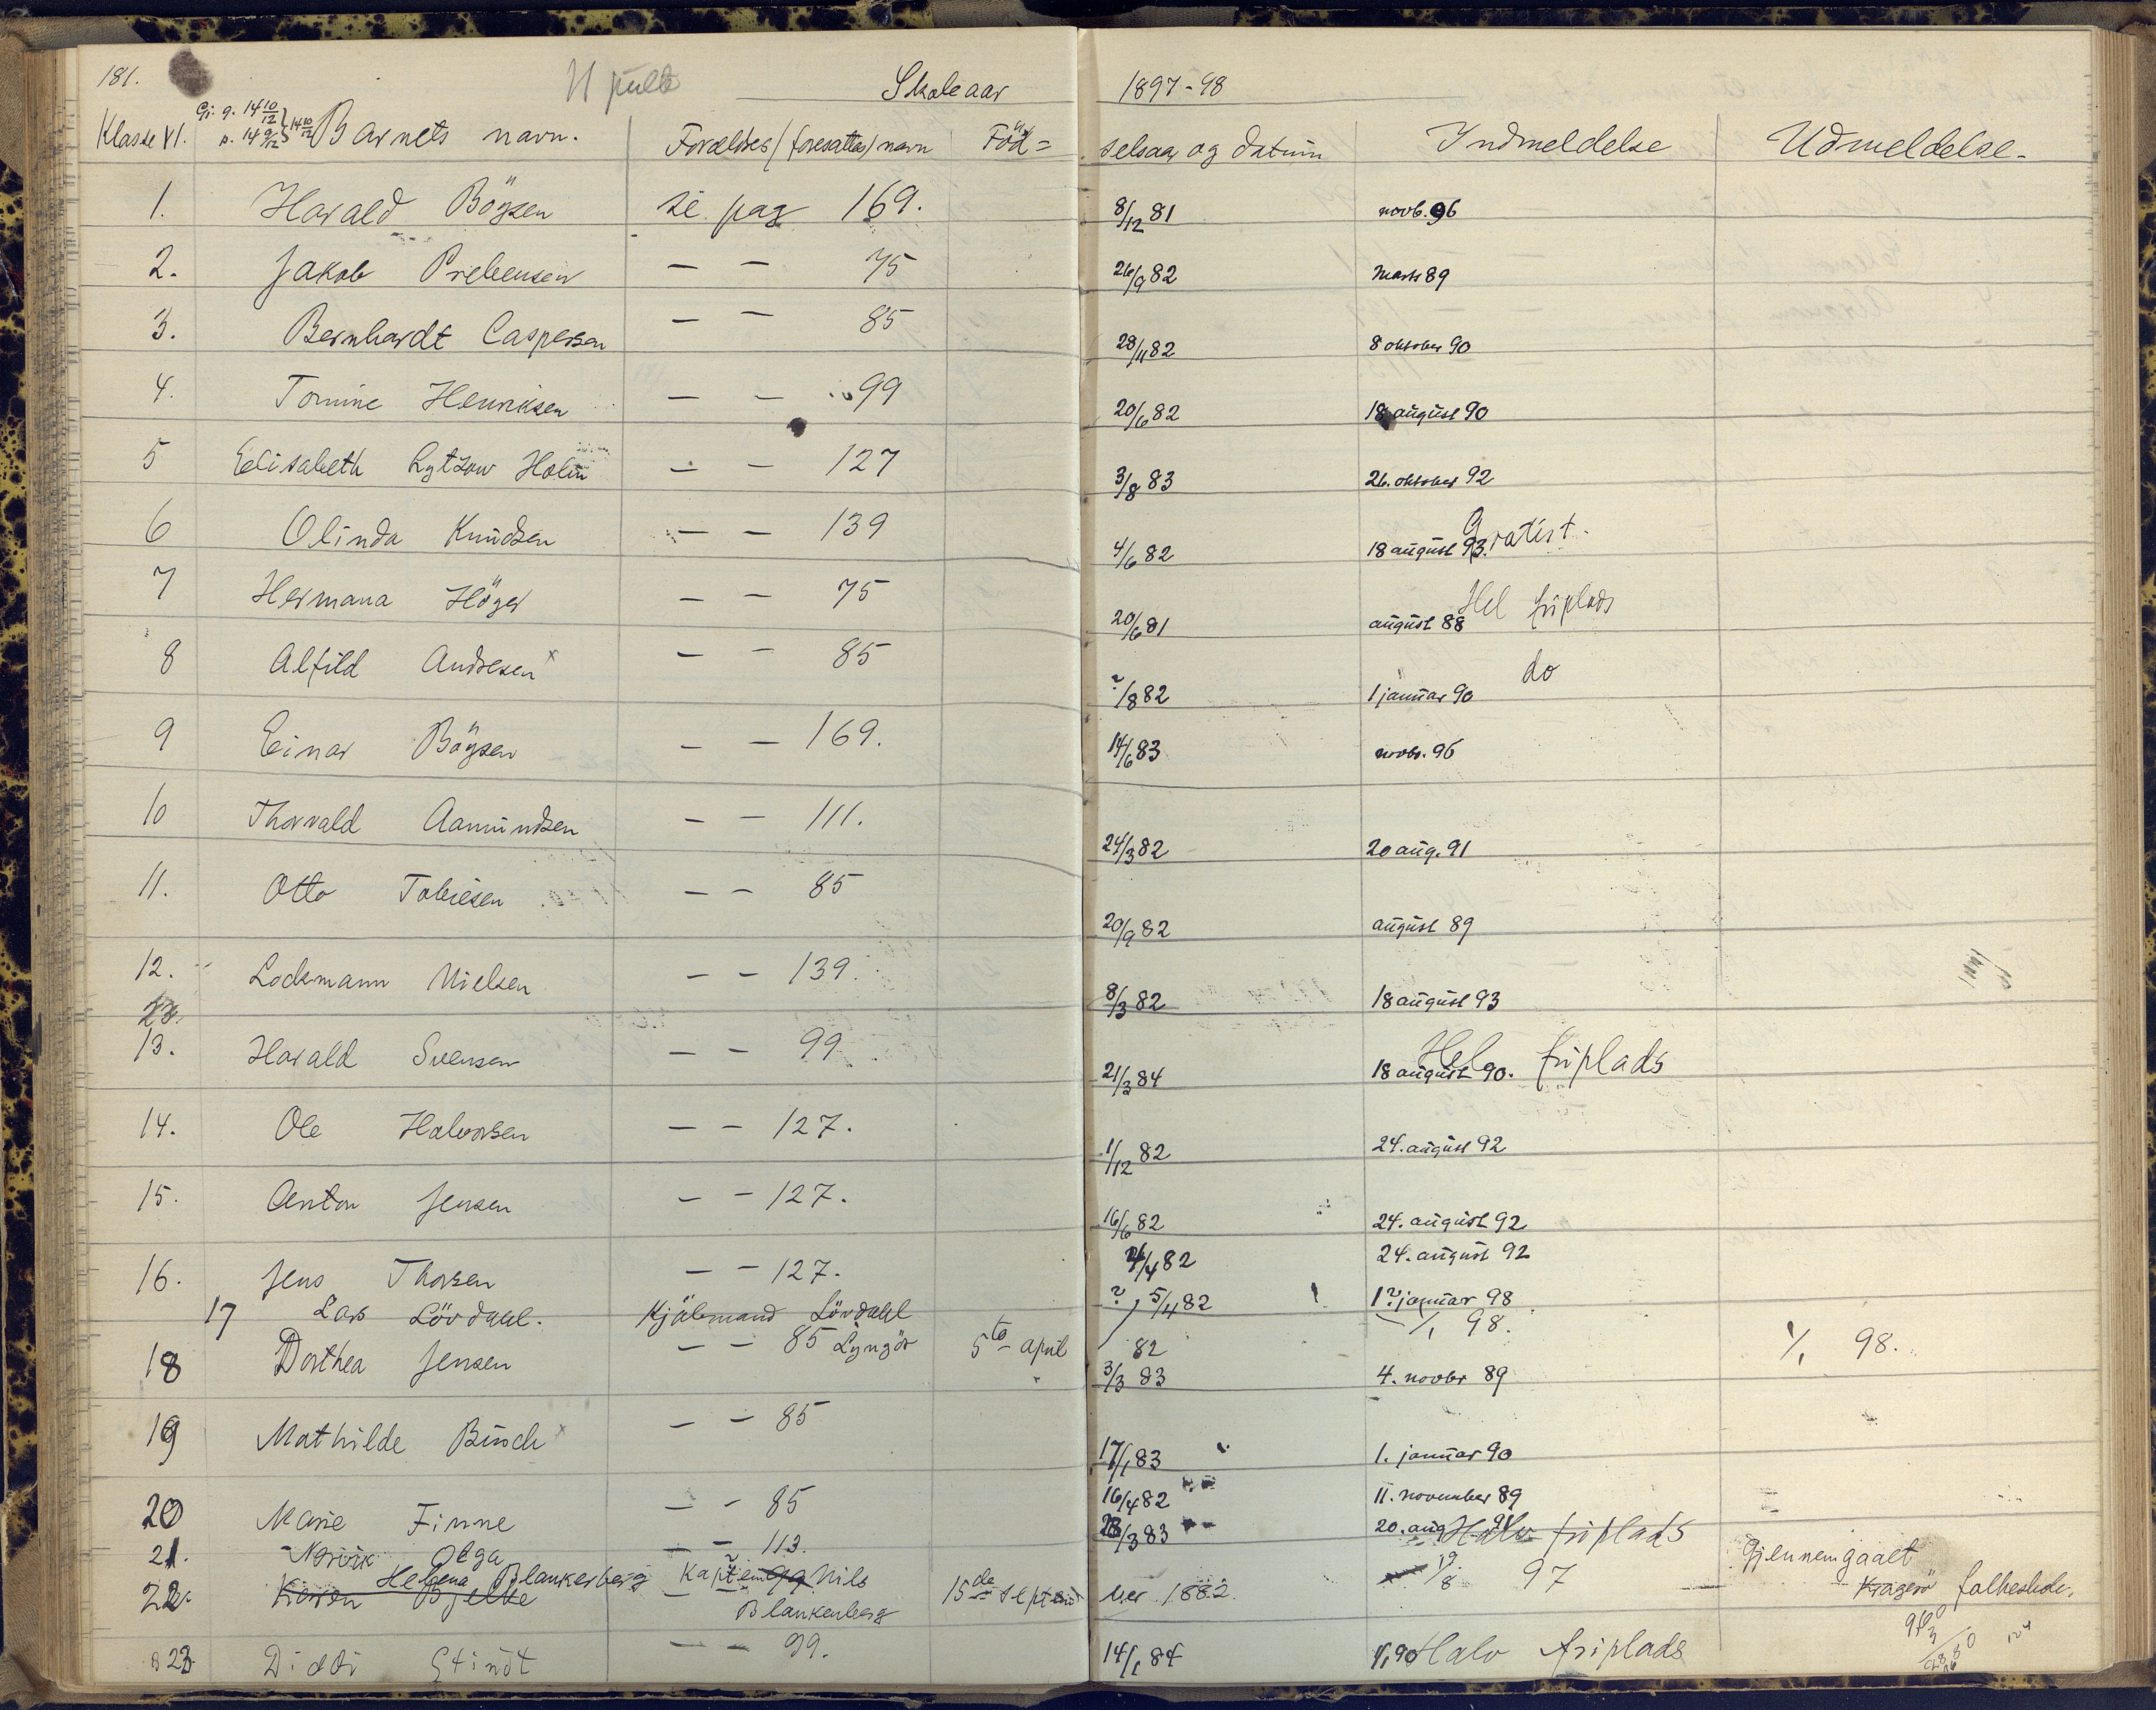 181.
11 pulte
Skoleaar 1897-98
Klasse VI. Gj. g. 14 10/12 p. 14 9/12 } 14 10/12 Barnets navn. Forældres (foresattes) navn Föd= selsaar og datum Indmeldelse Udmeldelse.
1. Harald Böysen se pag 169. 8/12 81 novb. 96
2. Jakob Prebensen — — 75 26/9 82 Marts 89
3. Bernhardt Caspersen — — 85 28/11 82 8 oktober 90
4. Tomine Henriksen — — 99 20/6 82 18 august 90
5 Elisabeth Lytzow Holm — — 127 3/8 83 26. oktober 92
6 Olinda Knudsen — — 139 4/6 82 18 august 93. Gratist.
7 Hermana Höyer — — 75 20/6 81 august 88 Hel friplads
8 Alfild Andresen x — — 85 ?/8 82 1 januar 90 do
9 Einar Böysen — — 169. 14/6 83 novbr. 96
10 Thorvald Aamundsen — — 111. 24/3 82 20 aug. 91
11. Otto Tobiesen — — 85 20/9 82 august 89
12. Lodsmann Nielsen — — 139. 8/3 82 18 august 93
13. Harald Svensen — — 99 21/3 84 18 august 90. Hel friplads
14. Ole Halvorsen — — 127. 1/12 82 24. august 92
15. Anton Jensen — — 127. 16/6 82 24. august 92
16. Jens Thorsen — — 127. 4/82 24. august 92
17 Lars Lövdahl. Kjöbmand Lövdahl Lyngör 5te april 82 ? 5/4 82 1? januar 98 1/1 98.
18 Dorthea Jensen — — 85 3/3 83 4. novbr 89 1/1 98.
19 Mathilde Busch x — — 85 17/1 83 1. januar 90
20 Marie Finne — — 85 16/4 82 11. november 89
21. Narvik Olga — — 113. 28/3 83 20. aug 91 Halv friplads
22. Helena Blankenberg Kaptein Nils Blankenberg 15de septem ber 1882. 19/8 97 Gjennemgaaet Kragerö folkeskole.
Karen Bjelke — 99
23. Diddi Stindt — — 99. 14/1 84 1/1 90 Halv friplads